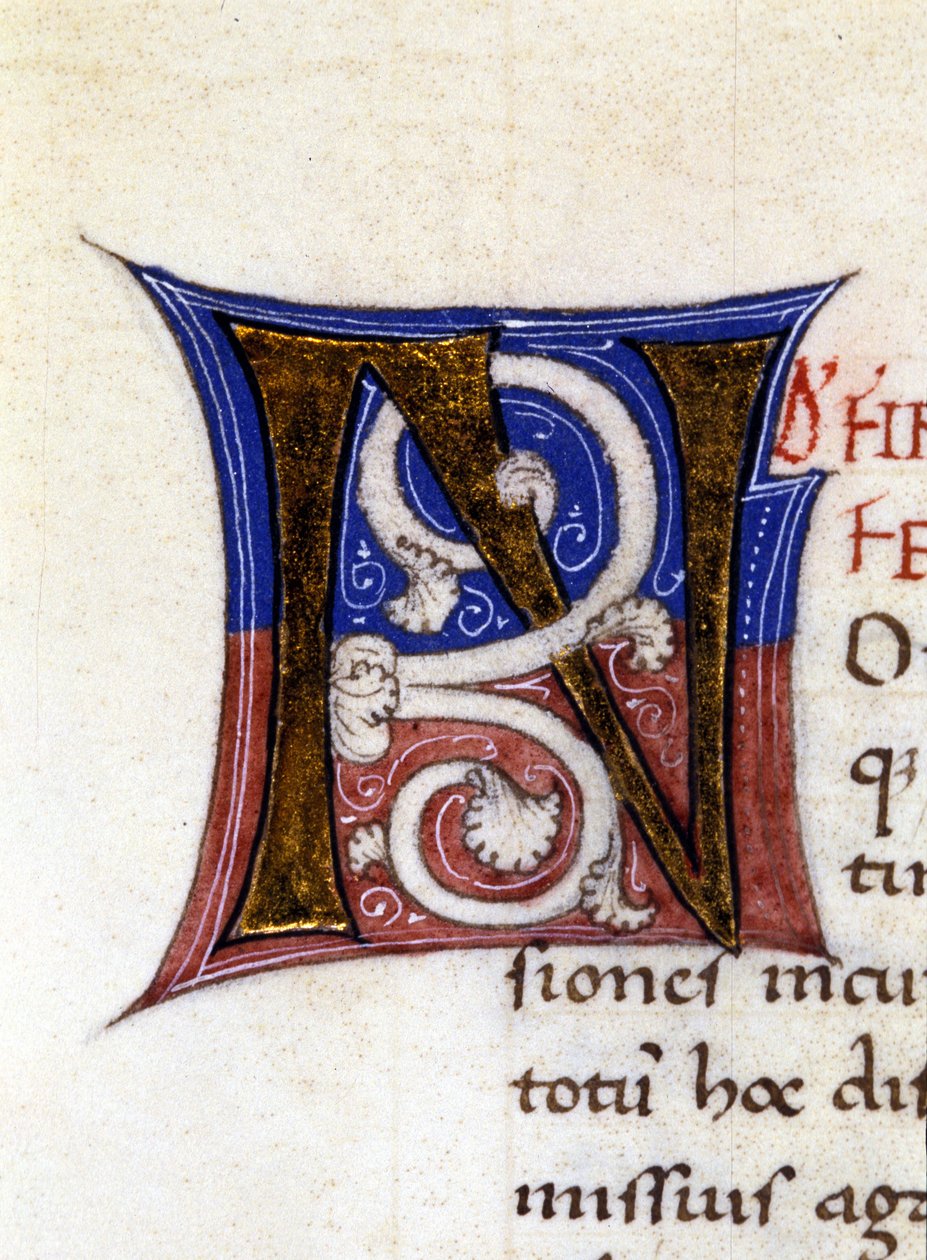 N
FIR
FE
O
q
tin
siones incu
totū hoc dis
missius aga